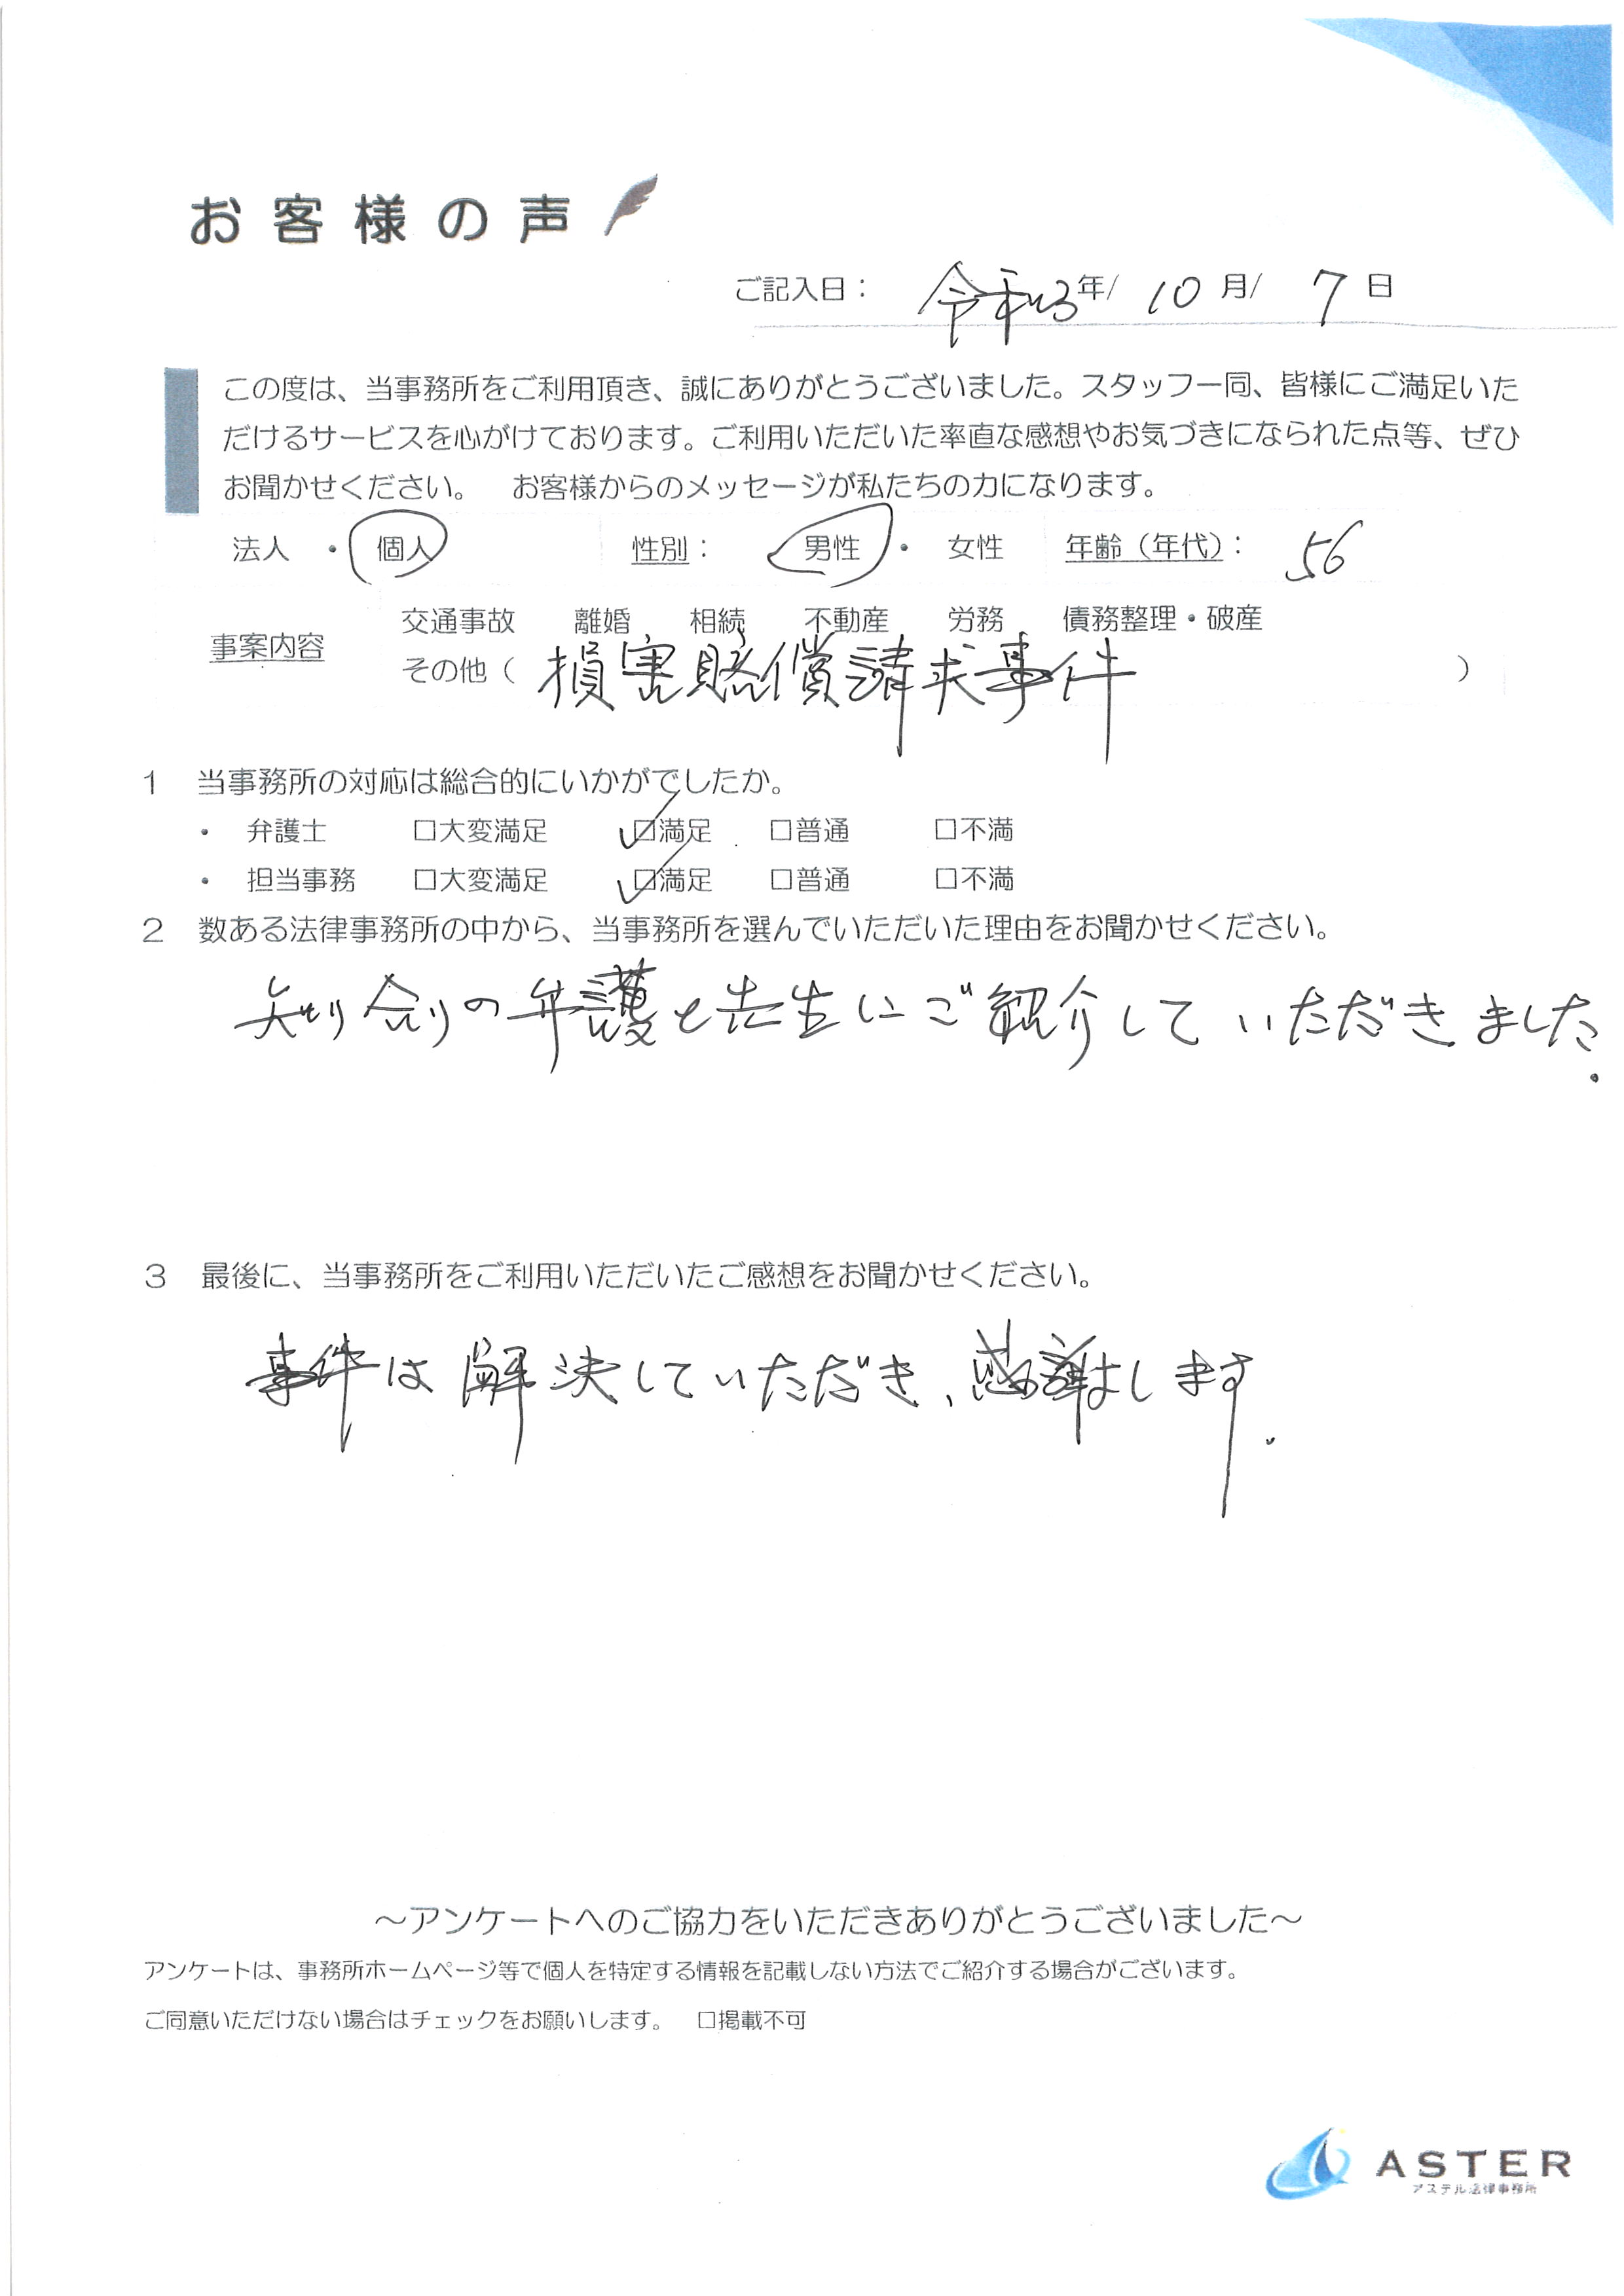 お客様の声
ご記入日： 令和3年/ 10月/ 7日
この度は、当事務所をご利用頂き、誠にありがとうございました。スタッフ一同、皆様にご満足いた
だけるサービスを心がけております。ご利用いただいた率直な感想やお気づきになられた点等、ぜひ
お聞かせください。 お客様からのメッセージが私たちの力になります。
法人 ・ 個人 性別： 男性 ・ 女性 年齢（年代）： 56
事案内容
交通事故 離婚 相続 不動産 労務 債務整理・破産
その他（ 損害賠償請求事件 ）
1 当事務所の対応は総合的にいかがでしたか。
・ 弁護士 □大変満足 ☑満足 □普通 □不満
・ 担当事務 □大変満足 ☑満足 □普通 □不満
2 数ある法律事務所の中から、当事務所を選んでいただいた理由をお聞かせください。
知り合りの弁護士先生にご紹介していただきました.
3 最後に、当事務所をご利用いただいたご感想をお聞かせください。
事件は解決していただき、感謝はします.
～アンケートへのご協力をいただきありがとうございました～
アンケートは、事務所ホームページ等で個人を特定する情報を記載しない方法でご紹介する場合がございます。
ご同意いただけない場合はチェックをお願いします。 □掲載不可
ASTER
アステル法律事務所